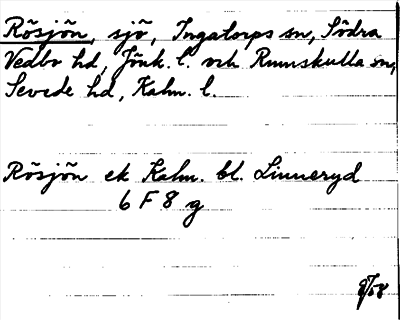 Rösjön, sjö, Ingatorps sn, Södra
Vedbo hd, Jönk. l. och Rumskulla sn,
Sevede hd, Kalm. l.
Rösjön ek Kalm. bl. Linneryd
6 F 8 g